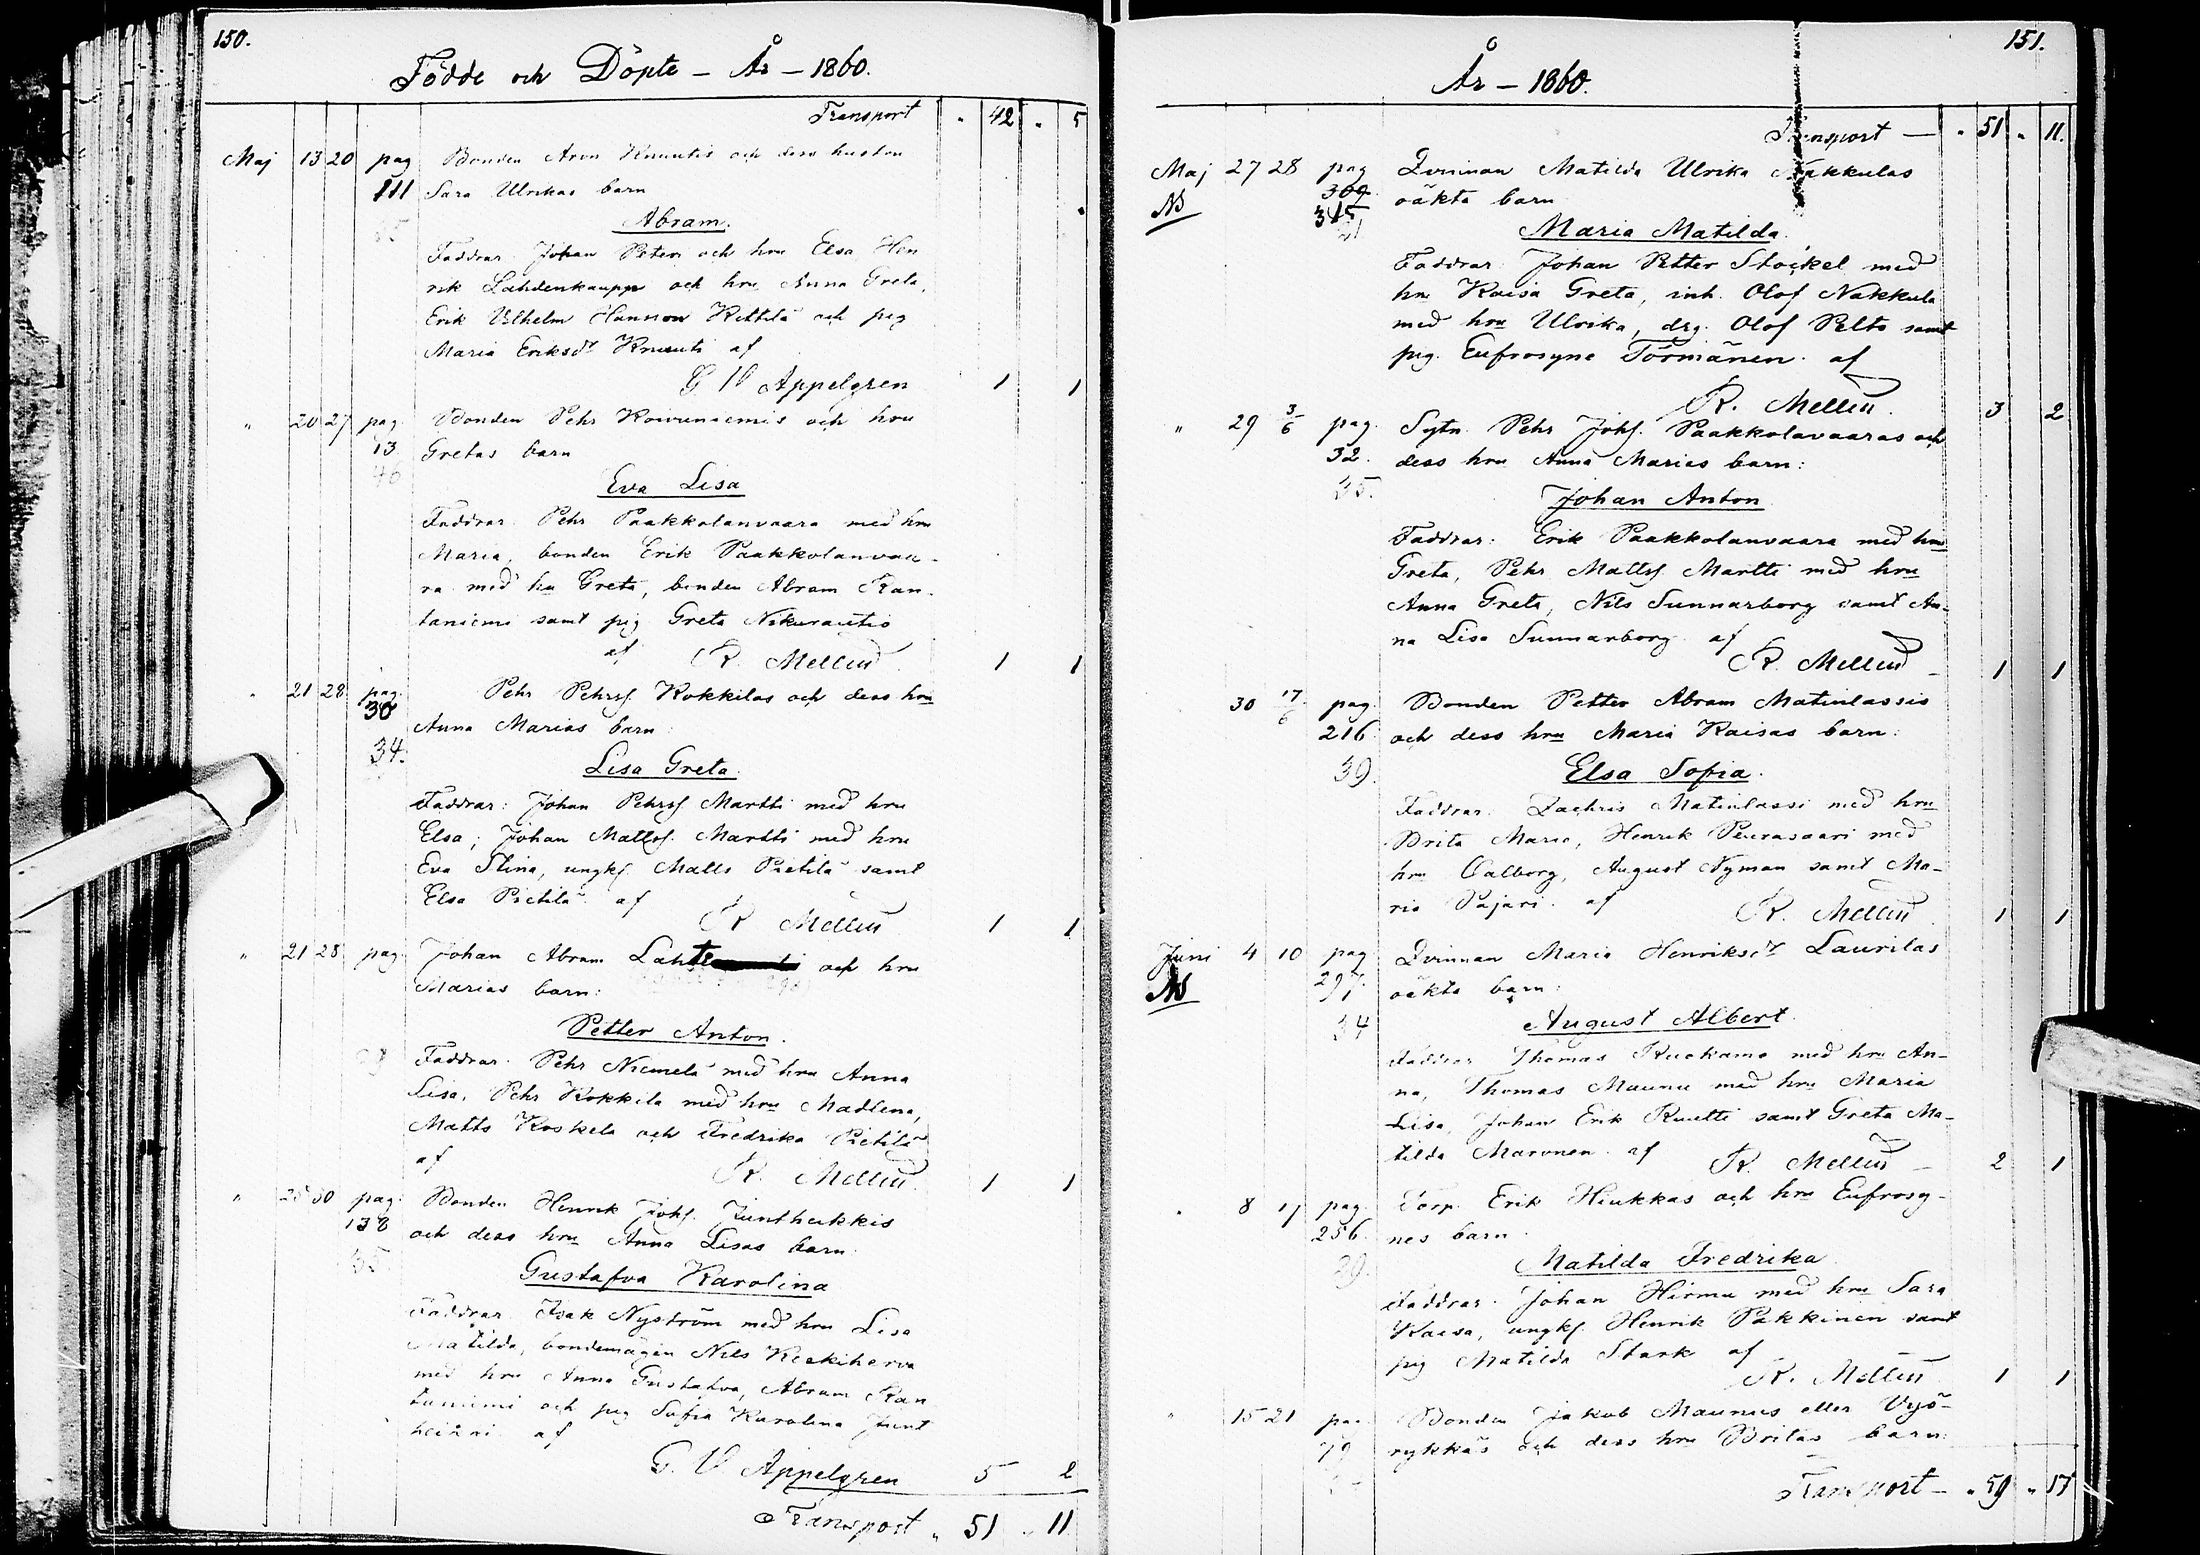 150.
Födde och Döpte - År - 1860.
Transport " 42 " 5
Maj 13 20 pag Bonden Aron Knuutis och dess hustru
111 Sara Ulrikas barn
Abram.
Faddrar Johan Peteri och hru Elsa, Hen
rik Lahdenkauppi och hru Anna Greta,
Erik Vilhelm Hannon Kittilä och pig
Maria Eriksdr Knuuti af
G V Appelgren 1 1
" 20 27 pag Bonden Pehr Koivuniemis och hru
13 Gretas barn
46
Eva Lisa
Faddrar Pehr Paakkolanvaara med hru
Maria, bonden Erik Paakkolanvaa-
ra med hu Greta, bonden Abram Ran-
taniemi samt pig Greta Nikurautio
af R. Mellin 1 1
" 21 28 pag. Pehr Pehrsf. Kokkilas och dess hru
30 Anna Marias barn:
34.
Lisa Greta.
Faddrar: Johan Pehrsf. Martti med hru
Elsa; Johan Mattsf. Martti med hru
Eva Stina, ungkf. Matts Pietilä samt
Elsa Pietilä af
R Mellin 1 1
" 21 28 pag Johan Abram och hru
Marias barn:
Petter Anton.
Faddrar. Pehr Niemelä med hru Anna
Lisa, Pehr Kokkila med hru Madlena,
Matts Koskela och Fredrika Pietilä
af
R. Mellin. 1 1
" 25 30 pag. Bonden Henrik Johf. Juntheikkis
138 och dess hru Anna Lisas barn
35.
Gustafva Karolina
Faddrar Isak Nyström med hru Lisa
Matilda, bondemågen Nils Keskiherva
med hru Anna Gustafva, Abram Ran
taniemi och pig Sofia Karolina Junt
heikki af
G. V Appelgren 5 2
Transport " 51 " 11
151.
År - 1860.
Transport — " 51 " 11.
Maj 27 28 pag Qvinnan Matilda Ulrika Näkkulas
NB 309. oäkta barn
315
Maria Matilda.
Faddrar: Johan Petter Stockel med
hru Kaisa Greta, inh. Olof Näkkula
med hru Ulrika, drg. Olof Pelto samt
pig. Eufrosyne Törmänen. af
R. Mellin. 3 2
" 29 3/6 pag. Sytn. Pehr Johf. Paakkolavaaras och
32. dess hru Anna Marias barn:
35.
Johan Anton
Faddrar: Erik Paakkolanvaara med hru
Greta, Pehr Mattsf Martti med hru
Anna Greta, Nils Sunnarborg samt An-
na Lisa Sunnarborg af
R. Mellin - 1 1
30 17/6 pag. Bonden Petter Abram Matinlassis
216 och dess hru Maria Kaisas barn:
39.
Elsa Sofia.
Faddrar. Zachris Matinlassi med hru
Brita Maria, Henrik Peurasaari med
hru Valborg, August Nyman samt Ma-
ria Pajari. af
R. Mellin 1 1
Juni 4 10 pag Qvinnan Maria Henriksdr Laurilas
NB 297. oäkta barn:
34
August Albert.
Faddrar Thomas Ruokamo med hru An-
na, Thomas Maunu med hru Maria
Lisa, Johan Erik Ruutti samt Greta Ma-
tilda Maronen. af R. Mellin - 2 1
" 8 17 pag. Torp. Erik Hiukkas och hru Eufrosy-
256. nes barn.
39.
Matilda Fredrika
Faddrar. Johan Hirmu med hru Sara
Kaisa, ungkf. Henrik Pakkinen samt
pig Matilda Stark af
R. Mellin 1 1
" 15 21 pag Bonden Jakob Maunus eller Vyö-
79 rykkäs och dess hru Britas barn:
Transport - " 59 " 17